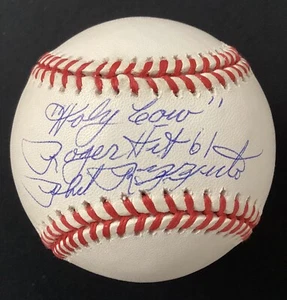 "Holy Cow"
Roger Hit 61
Phil Rizzuto